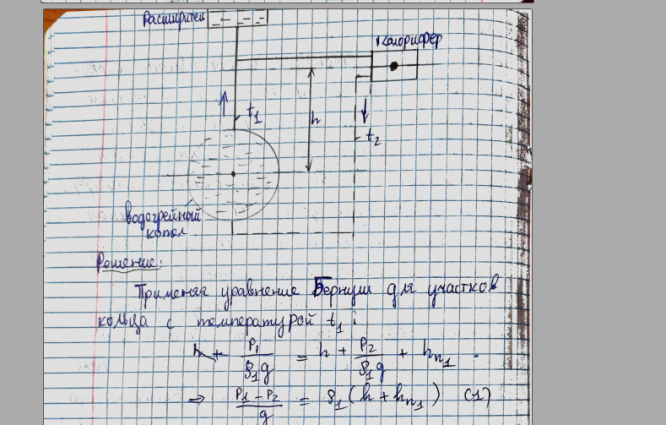 Расширител
Калорифер
t₁
h
t₂
водогрейный
котел
Решение:
Применяя уравнение Бернули для участков
кольца с температурой t₁:
h + P₁/ρ₁g = h + P₂/ρ₁g + hп₁
⇒ P₁ - P₂/g = ρ₁(h + hп₁) (1)